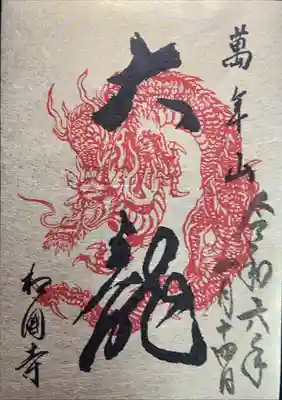 萬年山
令和六年
月十四日
大龍
相國寺